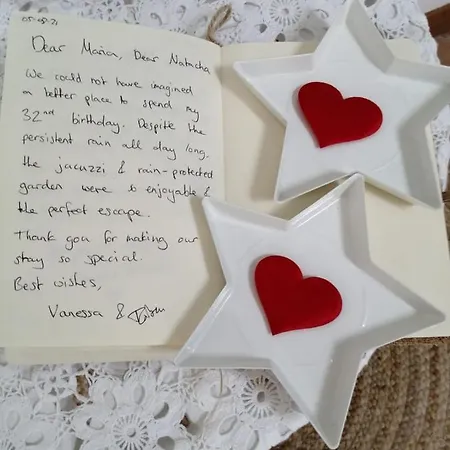 05·08·21
Dear Maria, Dear Natacha
We could not have imagined
a better place to spend my
32nd birthday. Despite the
persistent rain all day long,
the jacuzzi & rain-protected
garden were so enjoyable &
the perfect escape.
Thank you for making our
stay so special.
Best wishes,
Vanessa &